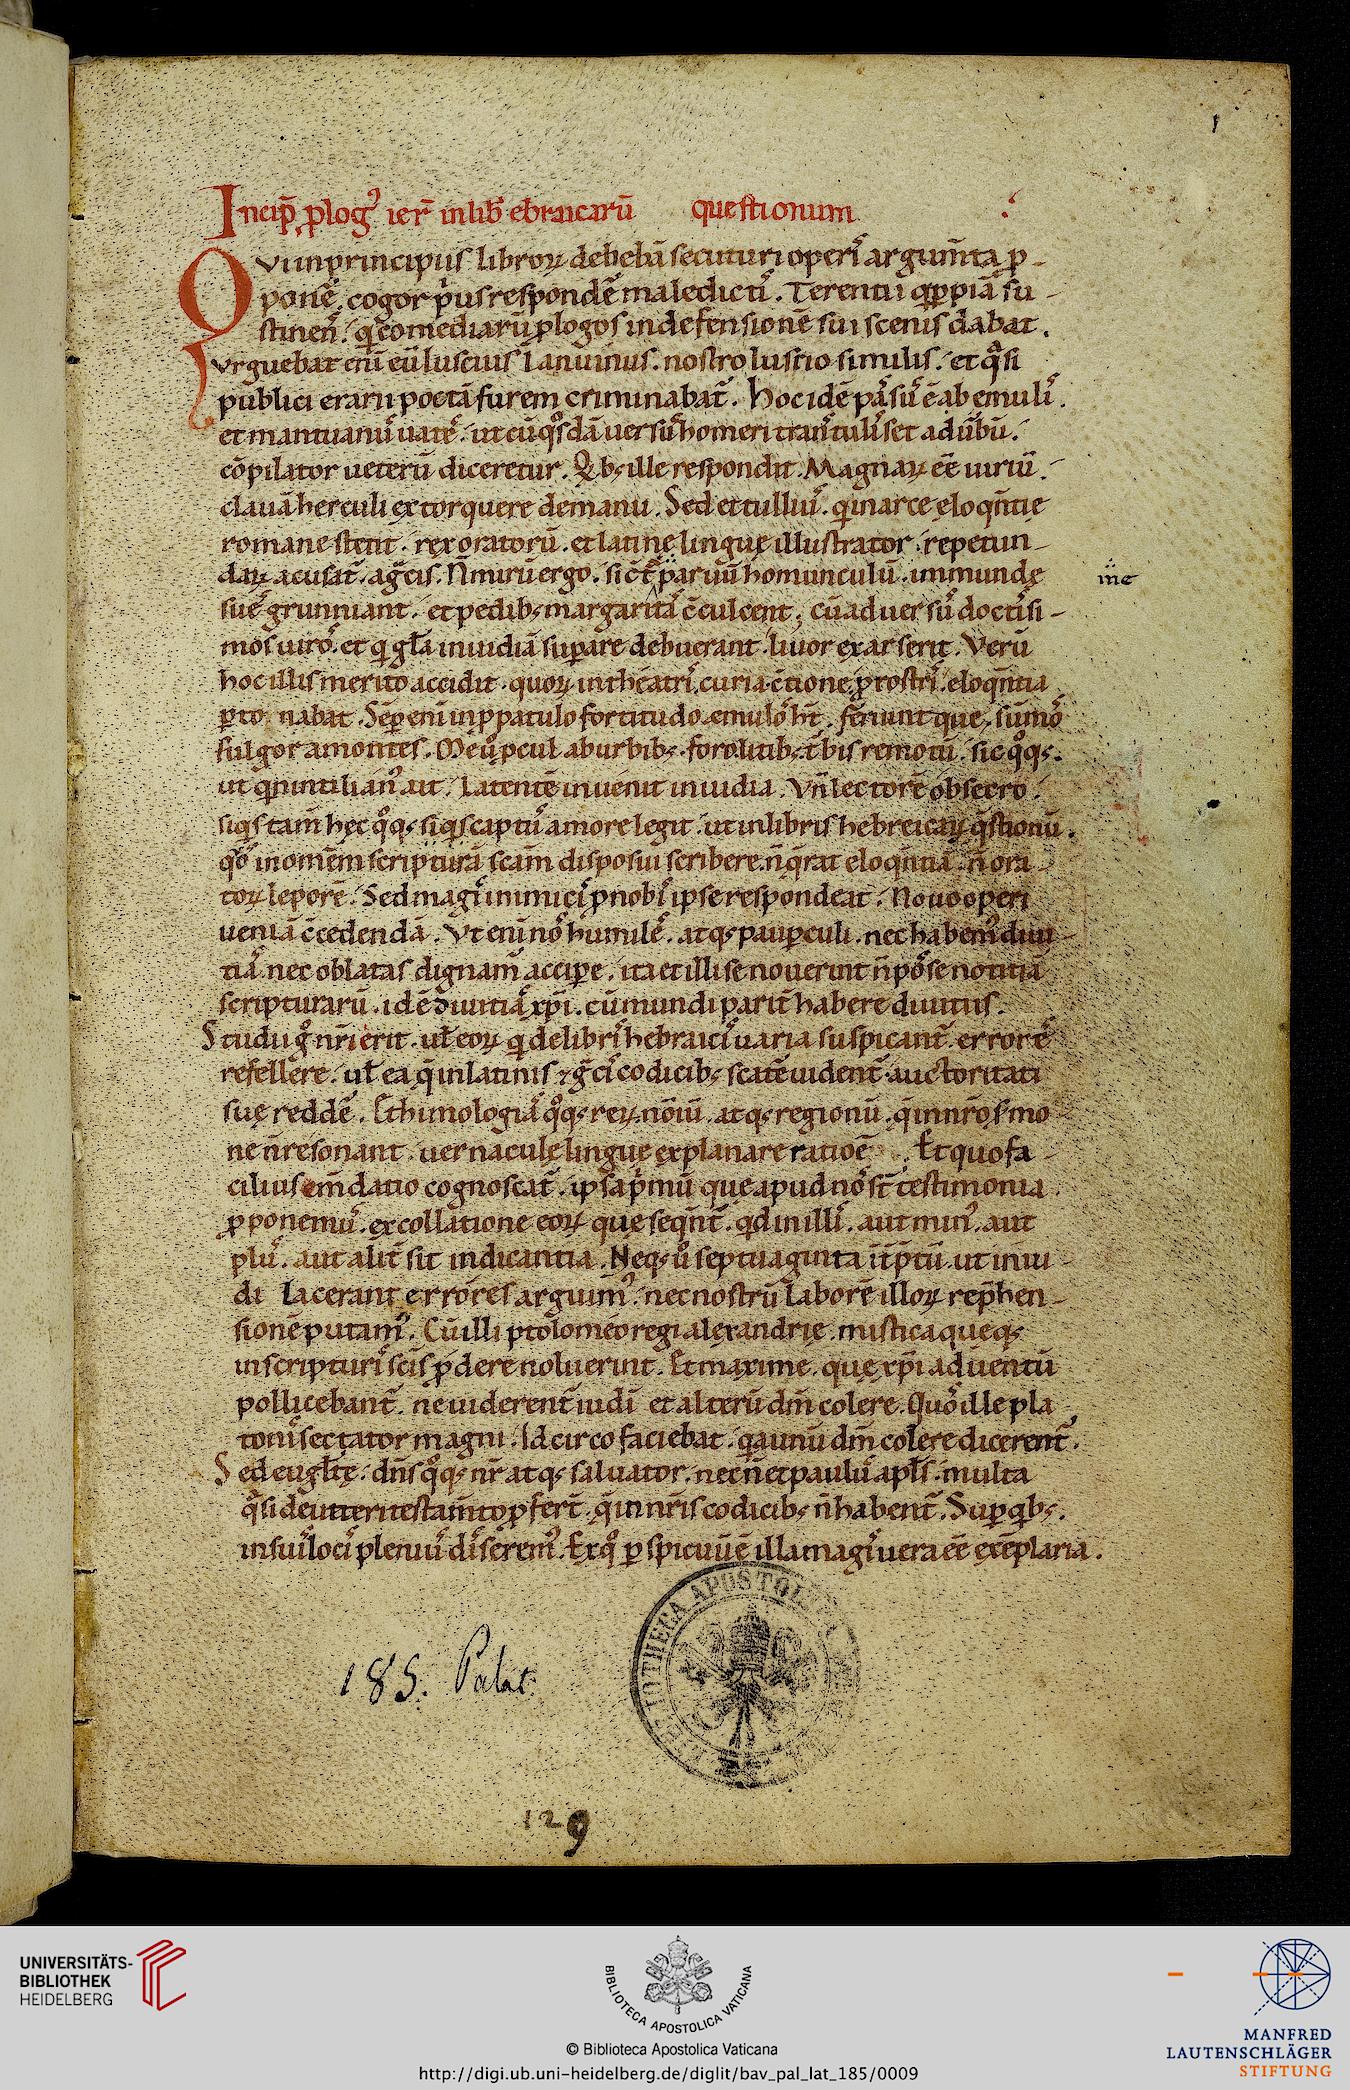 1
Incip̄ ꝓlogꝰ ier̄ in lib̄ ebraicarū questionum
Qui in principiis libroꝝ debebā secuturi operis argum̄ta ꝓ-
ponē. cogor prius respondē maledictis. Terentii qͥppiā su-
stinens. qͥ comediarū ꝓlogos in defensionē sui scenis dabat.
Vrguebat eni eū luscius lanuinus. nostro luscio similis. et qͣsi
publici erarii poetā furem criminabat᷑. Hoc idē passus ē ab emulis.
et mantuanus uates. ut cū qͦsdā uersus homeri transtulisset ad ūbū.
cōpilator ueterū diceretur. Qͥbꝫ ille respondit. Magnaꝝ eē uiriū.
clauā herculi extorquere de manu. Sed et tullius. qͥ in arce eloqn̄tię
romane stetit. rex oratorū. et latinę linguę illustrator. repetun-
daꝝ acusat᷑. a grecis. N̄ mirū ergo. si cͣ me paruū homunculū. immundę
sues grunniant. et pedibꝫ margaritas c̄culcent. cū aduersus doctissi-
mos uiros. et qͥ gl̄a inuidiā suꝑare debuerant. liuor exarserit. Verū
hoc illis merito accidit. quoꝝ in theatris. curia. c̄tione. ꝓ rostris. eloqn̄tia
ꝑtonabat. Sēꝑ eni in ꝓpatulo fortitudo emulos ht̄. feriuntque summos
fulgora montes. Me ū ꝓcul ab urbibꝫ. foro. litibꝫ. t̄bis remotū. sic qͦqꝫ.
ut qͥuintilianꝰ ait. Latentē inuenit inuidia. Vn̄ lectorē obsecro.
siqͥs tam̄ hęc qͦqꝫ. siqͥs captus amore legit. ut in libris hebreicaꝝ qͣstionū.
qͦs in omēm scripturā scām disposui scribere n̄ qͣrat eloqn̄tiā. n̄ ora-
toꝝ leporē. Sed magis inimicis ꝓ nobis ipse respondeat. Nouo operi
ueniā c̄cedendā. Vt eni nos humiles. atqꝫ pauꝑculi. nec habemꝰ diui-
tias nec oblatas dignam̄ acciꝑe. ita et illi se nouerint n̄ posse notitiā
scripturarū. id ē diuitias xp̄i. cū mundi parit᷑ habere diuitiis.
Studii gͦ nr̄i erit. ul̄ eoꝝ qͥ de libris hebraicis uaria suspicant᷑. errorē
refellere. ul̄ ea qͣ in latinis ⁊ grecis codicibꝫ scatē uident᷑. auctoritati
suę reddē. Ethimologiā qͦqꝫ reꝝ. nōiū. atqꝫ regionū. qͣ in nr̄o sermo-
ne n̄ resonant. uernaculę linguę explanare ratioē. Et quo fa-
cilius em̄datio cognoscat᷑. ipsa pͥmū quę apud nos st̄ testimonia.
ꝓponemus. ex collatione eoꝝ que seqn̄t᷑. qͥd in illis. aut minꝰ. aut
plus. aut alit᷑ sit indicantia. Neqꝫ ū septuaginta it̄p̄tū. ut inui-
di lacerant errores arguimꝰ. nec nostrū laborē illoꝝ rep̄hen-
sionē putamꝰ. Cū illi ptolomeo regi alexandrię. mistica queqꝫ
in scripturis scīs ꝓdere noluerint. Et maxime. quę xp̄i aduentū
pollicebant᷑. ne uiderent᷑ iudi et alterū dm̄ colere. Quos ille pla-
tonis sectator magni. Idcirco faciebat. qͥa unū dm̄ colere dicerent᷑.
Sed euglt̄ę. dn̄s qͦqꝫ nr̄ atqꝫ saluator. necn̄ et paulus apl̄s. multa
qͣsi de ueteri testam̄to ꝓfert᷑. qͣ in nr̄is codicibꝫ n̄ habent᷑. Suꝑ qͥbꝫ.
in suis locis plenius disseremꝰ. Ex qͦ ꝑspicuū ē illa magis uera eē exēplaria.
me
185. Palat.
BIBLIOTHECA APOSTOLICA
129
UNIVERSITÄTS-
BIBLIOTHEK
HEIDELBERG
BIBLIOTECA APOSTOLICA VATICANA
© Biblioteca Apostolica Vaticana
http://digi.ub.uni-heidelberg.de/diglit/bav_pal_lat_185/0009
MANFRED
LAUTENSCHLÄGER
STIFTUNG